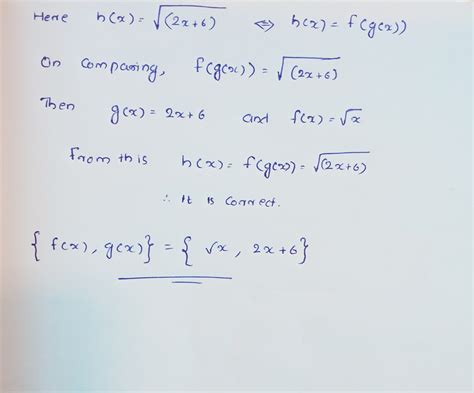 Here h(x) = √(2x+6) ⇔ h(x) = f(g(x))
On Comparing, f(g(x)) = √(2x+6)
Then g(x) = 2x+6 and f(x) = √x
From this h(x) = f(g(x)) = √(2x+6)
∴ it is correct.
{ f(x), g(x) } = { √x, 2x+6 }